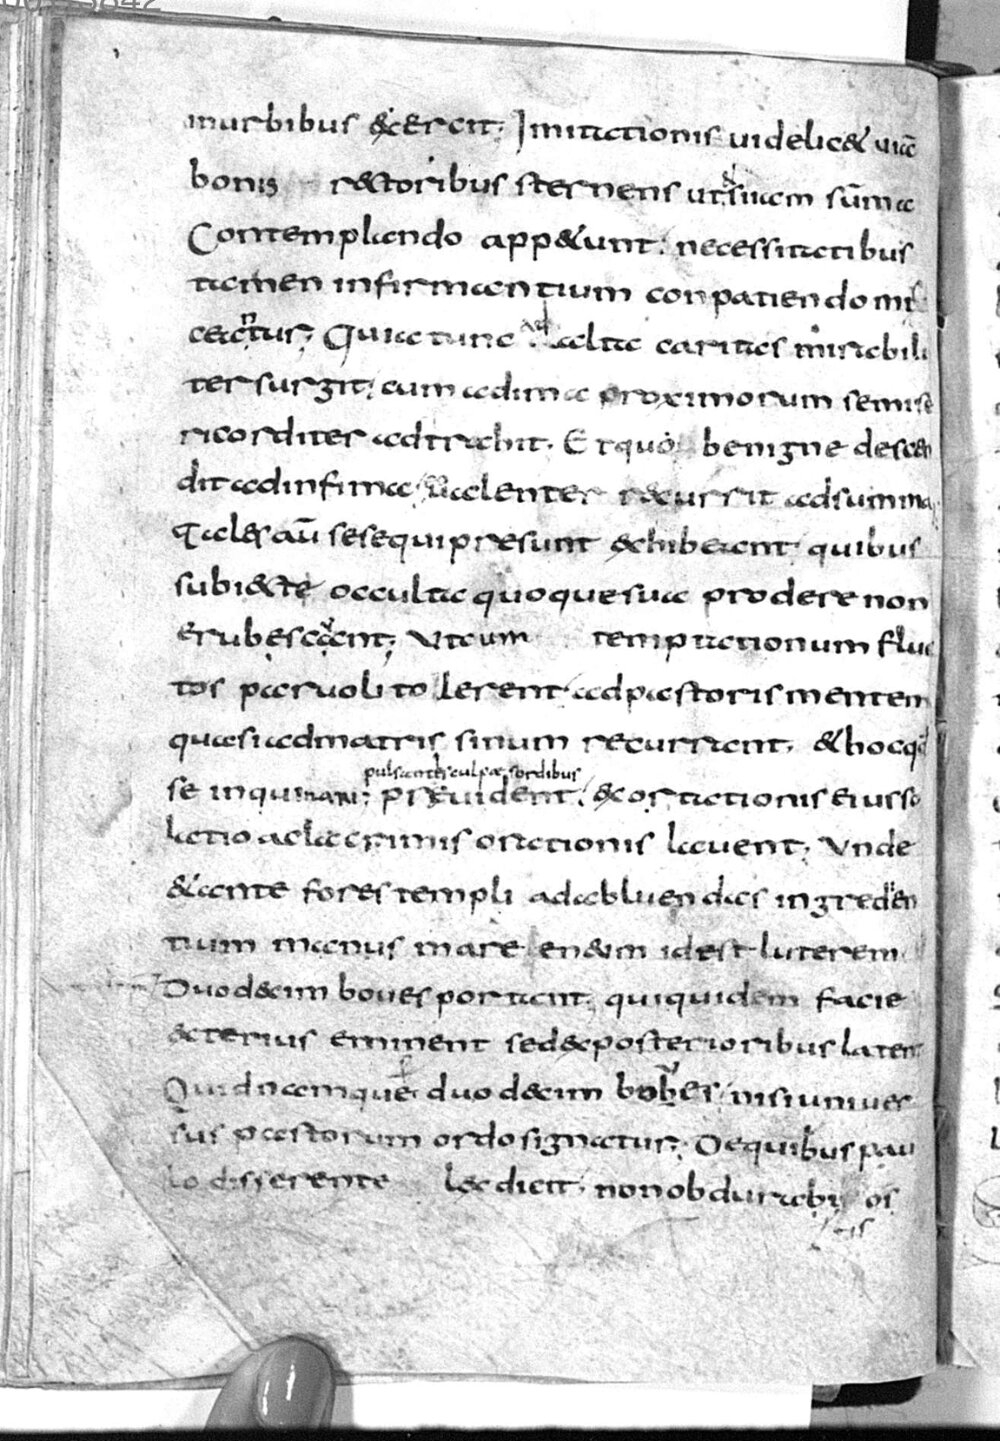 in urbibus exercit. Imitationis uidelic& uiā
bonis r&toribus sternens ut suam sūma
Contemplando app&unt. necessitatibus
tamen infirmantium conpatiendo mis
ceantur; Quia tunc ad alta caritas mirabili
ter surgit, cum ad ima proximorum semise
ricorditer adtrahit. Et quo benigne descen
dit ad infima, ualenter recurrit ad summa,
Tales aū sese qui presunt exhibeant quibus
subi&te occulta quoque sua prodere non
erubescant; Vt cum temptationum fluc
tos paruoli tolerent ad pastoris mentem
quasi ad matris sinum recurrant. & hoc q̄d
pulsantes culpae sordibus
se inquinari preuident, exortationis eius so
latio ac lacrimis orationis lauent; Vnde
& ante fores templi ad abluendas ingredien
tium manus mare eneum id est luterem
Duodecim boues portant. qui quidem facie
exterius eminent sed ex posterioribus latent
Quid namque duodecim bobes, nisi uniuer
sus pastorum ordo signatur; De quibus pau
lo disserente lex dicit. non obdurabis os